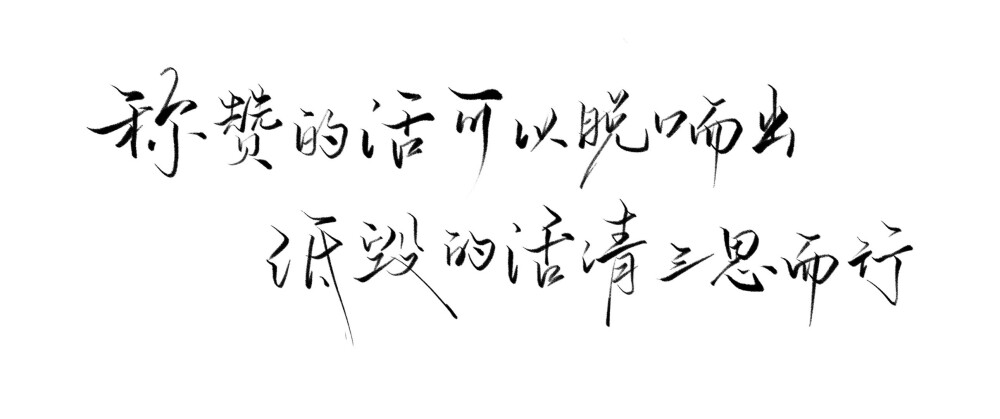 称赞的话可以脱口而出
诋毁的话请三思而行